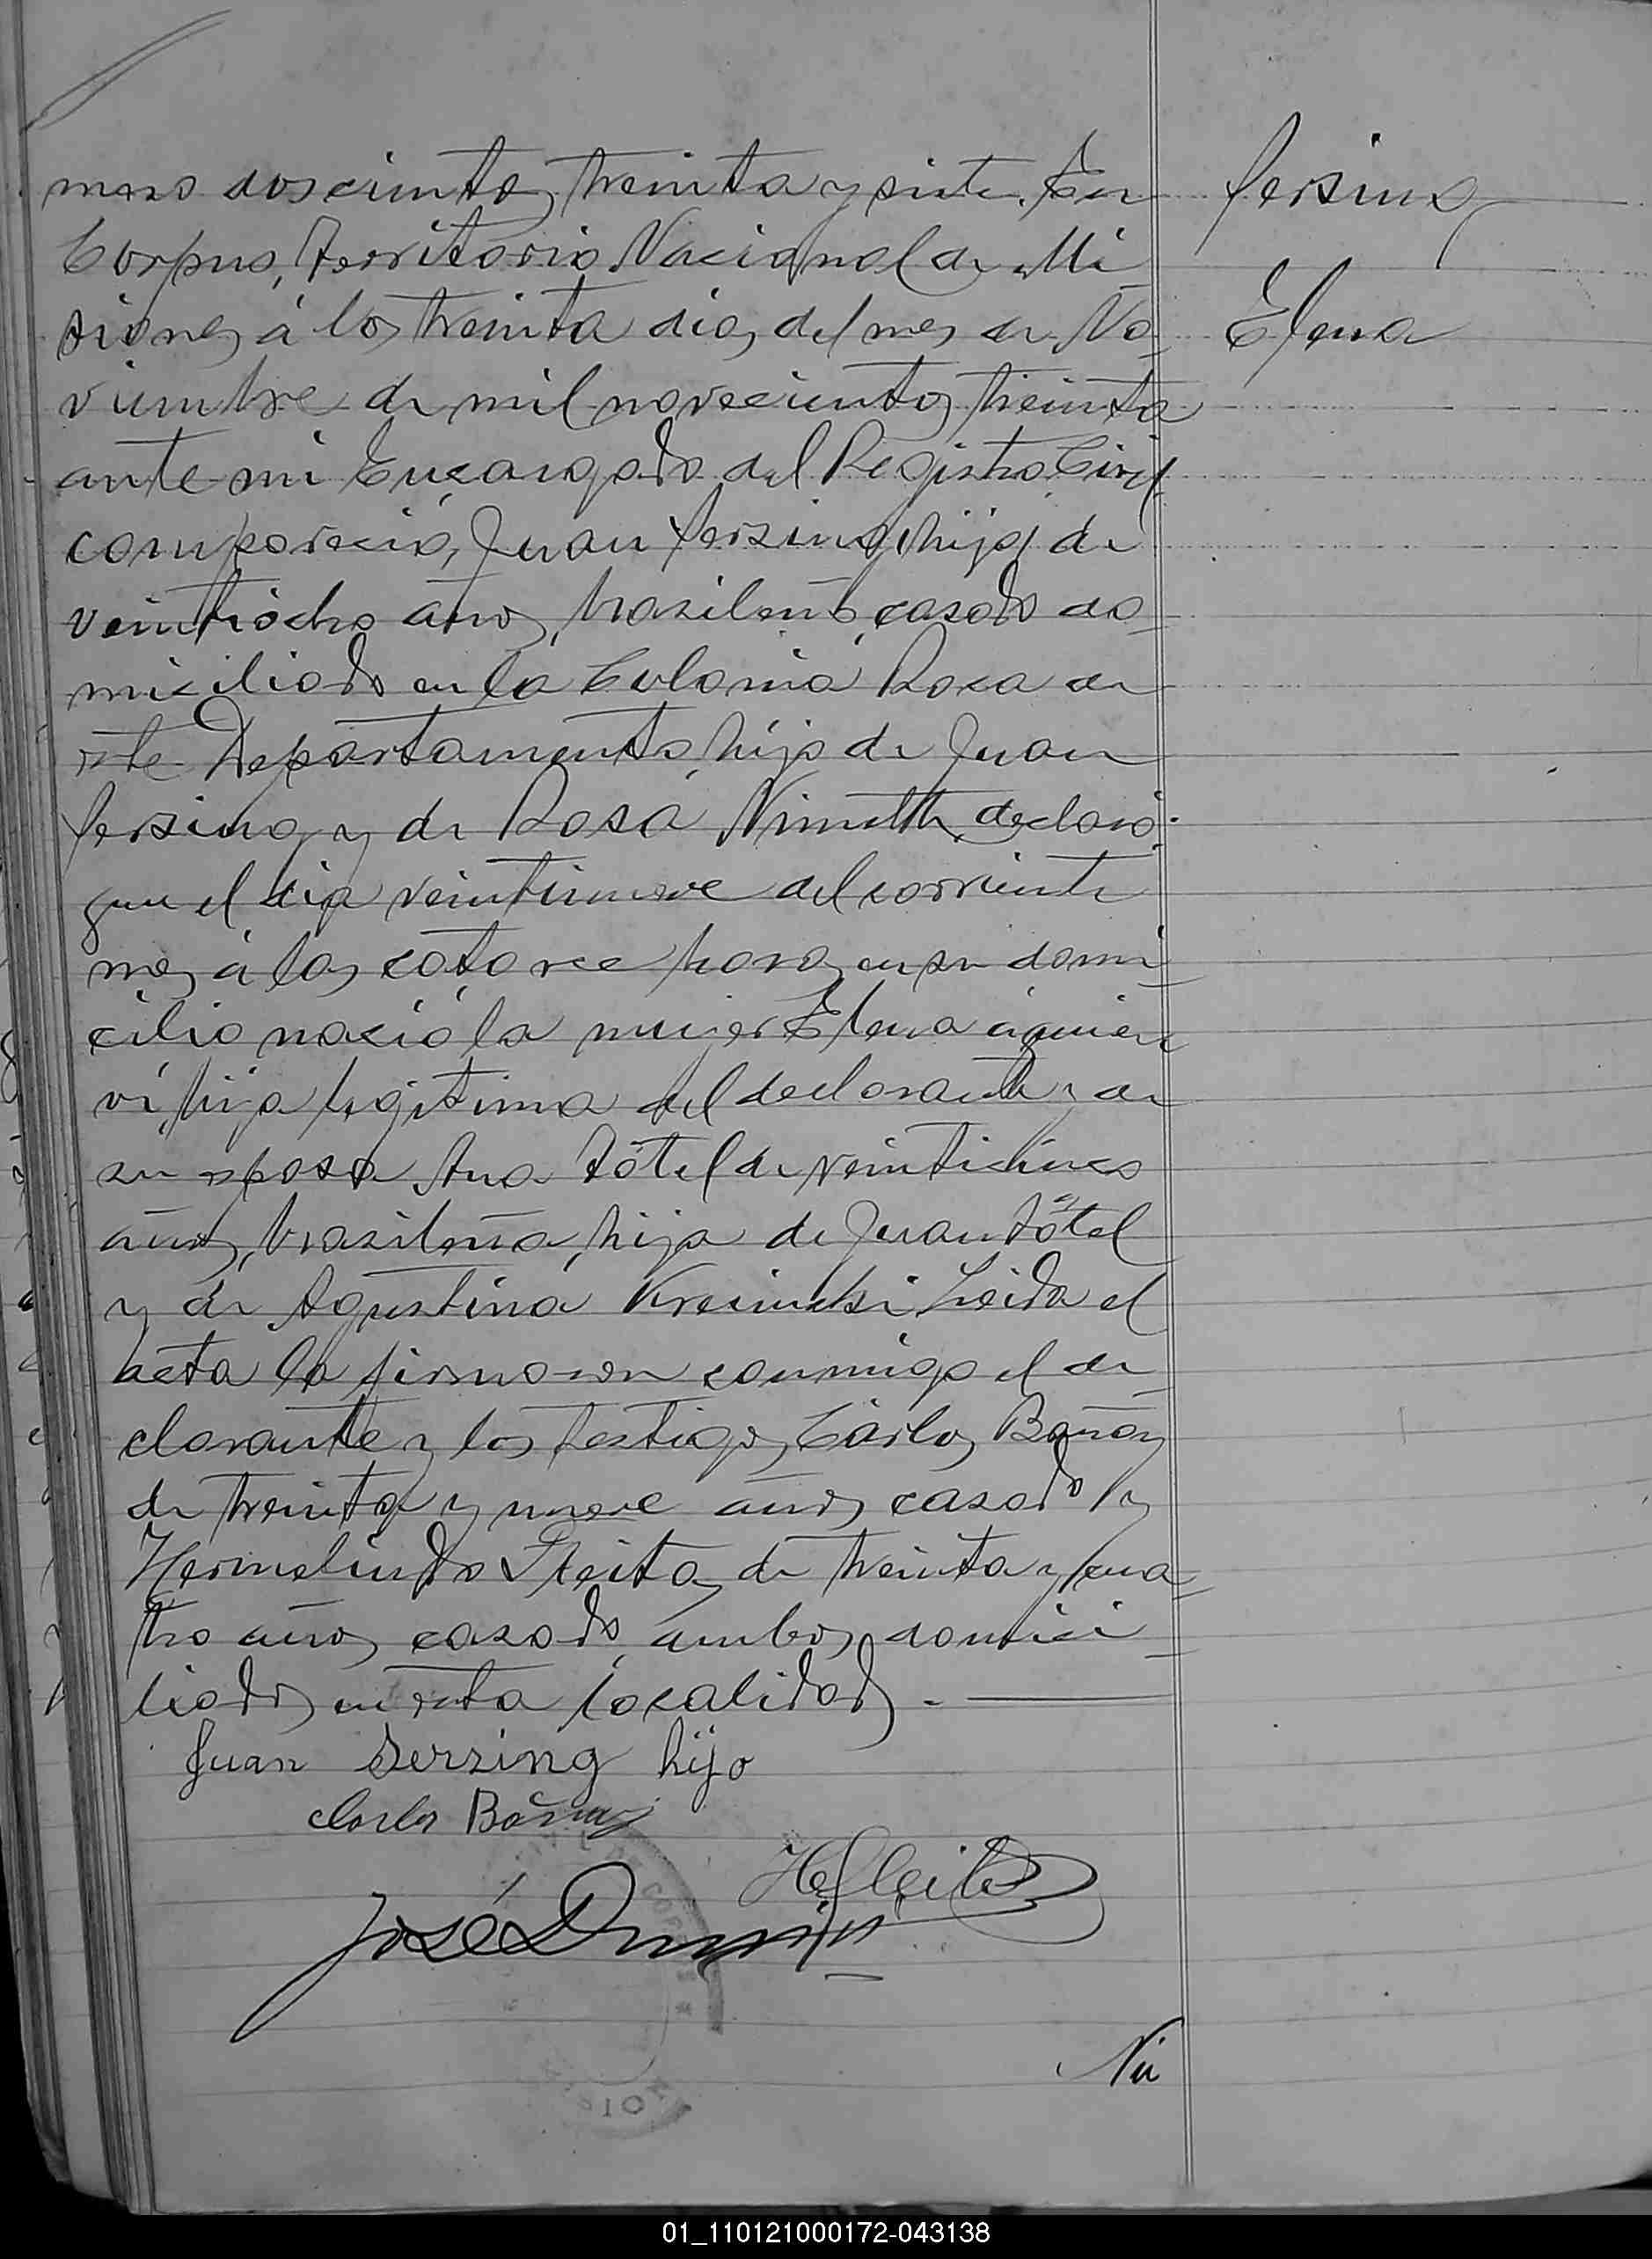 mero doscientos treinta y siete. En
Corpus, Territorio Nacional de Mi
siones á los treinta dias del mes de No
viembre de mil novecientos treinta
ante mi Encargado del Registro Civil
compareció, Juan Persing hijo, de
veintiocho años, brasileño, casado do
miciliado en la Colonia Roca de
este Departamento, hijo de Juan
Persing y de Rosa declaró:
que el dia veintinueve del corriente
mes á las catorce horas en su domi
cilio nació la mujer Elena á quien
ví, hija legitima del declarante y de
su esposa Ana de veinticinco
años, brasileña, hija de Juan
y de Agustina Leida el
acta la firmaron conmigo el de
clarante y los testigos, Cárlos Bañay
de treinta y nueve años, casado y
Hermelindo Fleitas de treinta y cua
tro años, casado, ambos domici
liados en esta localidad. 
Juan Serzing hijo
Carlos Bañay
H Fleitas
José
Nú
Persing
Elena
01_110121000172-043138